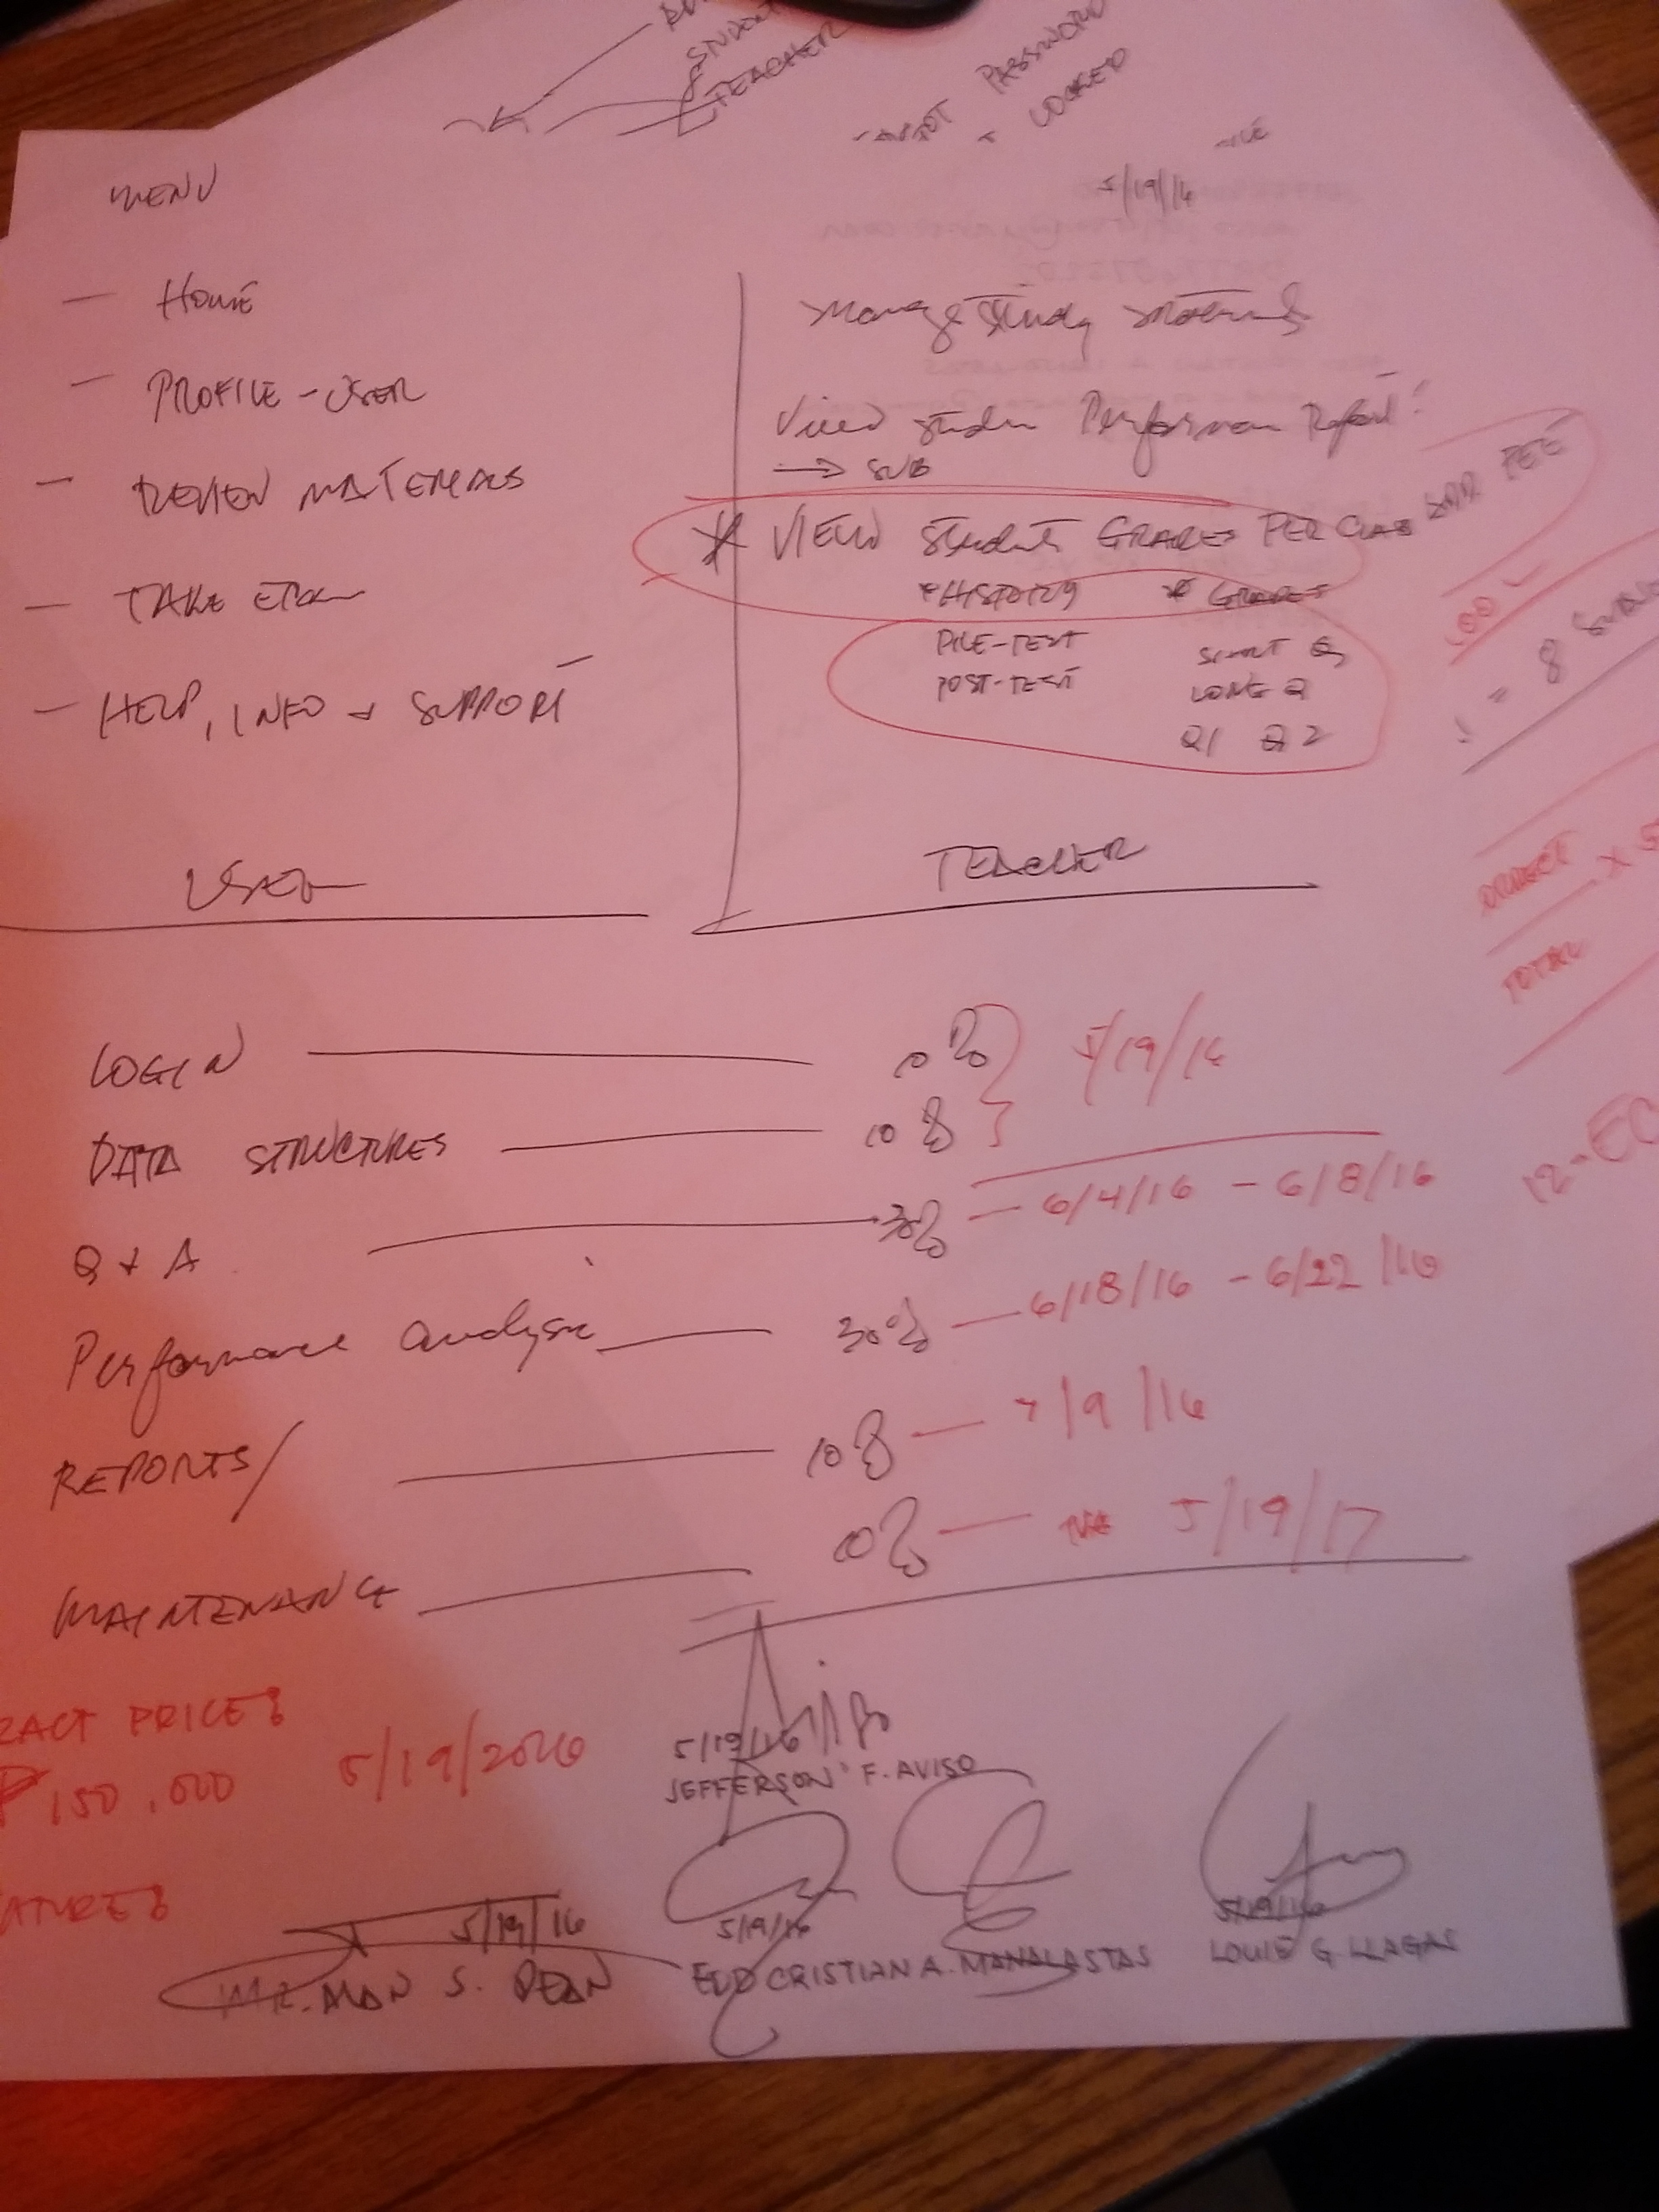 STUDENT
TEACHER
PASSWORD
LOCKED
MENU
5/19/16
— HOME
— PROFILE - USER
— REVIEW MATERIALS
— TAKE EXAM
— HELP, INFO & SUPPORT
USER
Manage Study Materials
View Student Performan Report
→ SUB
* VIEW Students GRADES PER CLASS
*HISTORY * GRADES
PRE-TEST SHORT Q
POST-TEST LONG Q
Q1 Q2
TEACHER
100
= 8
PROJECT
X
TOTAL
12-
LOGIN — 10% 5/19/16
DATA STRUCTURES — 10%
Q & A — 30% — 6/4/16 - 6/8/16
Performance analysis — 30% — 6/18/16 - 6/22/16
REPORTS/ — 10% — 7/9/16
MAINTENANCE — 10% — 5/19/17
PRICE:
₱150,000 5/19/2016
5/19/16
JEFFERSON F. AVISO
5/19/16
MR. ALAN S. DEAN
5/19/16
EDD CRISTIAN A. MANALASTAS
5/19/16
LOUIE G. LLAGAS